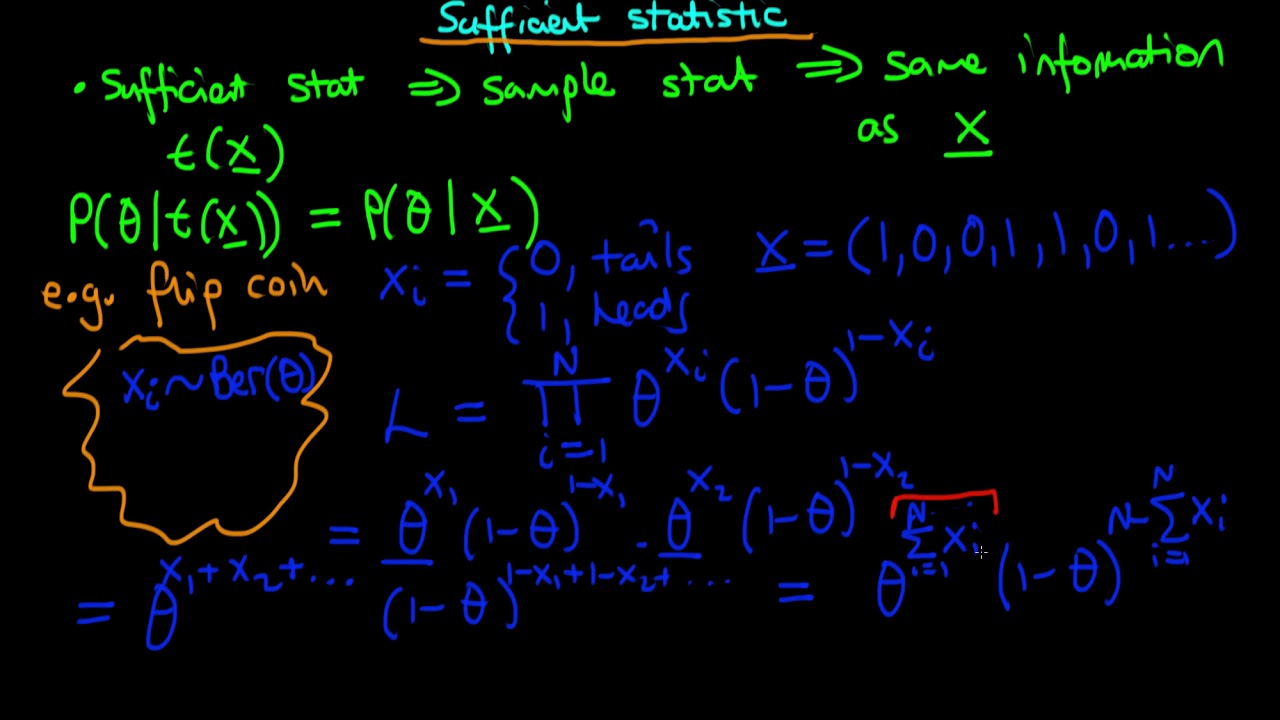 Sufficient statistic
• Sufficient stat ⇒ sample stat ⇒ same information
t(X) as X
P(θ|t(X)) = P(θ|X)
e.g. flip coin Xi = { 0, tails X = (1,0,0,1,1,0,1...)
1, heads
Xi ~ Ber(θ)
L = ∏_{i=1}^{N} θ^{Xi} (1-θ)^{1-Xi}
= θ^{X1} (1-θ)^{1-X1} . θ^{X2} (1-θ)^{1-X2}
= θ^{X1+X2+...} (1-θ)^{1-X1+1-X2+...} = θ^{∑_{i=1}^{N} Xi} (1-θ)^{N-∑_{i=1}^{N} Xi}